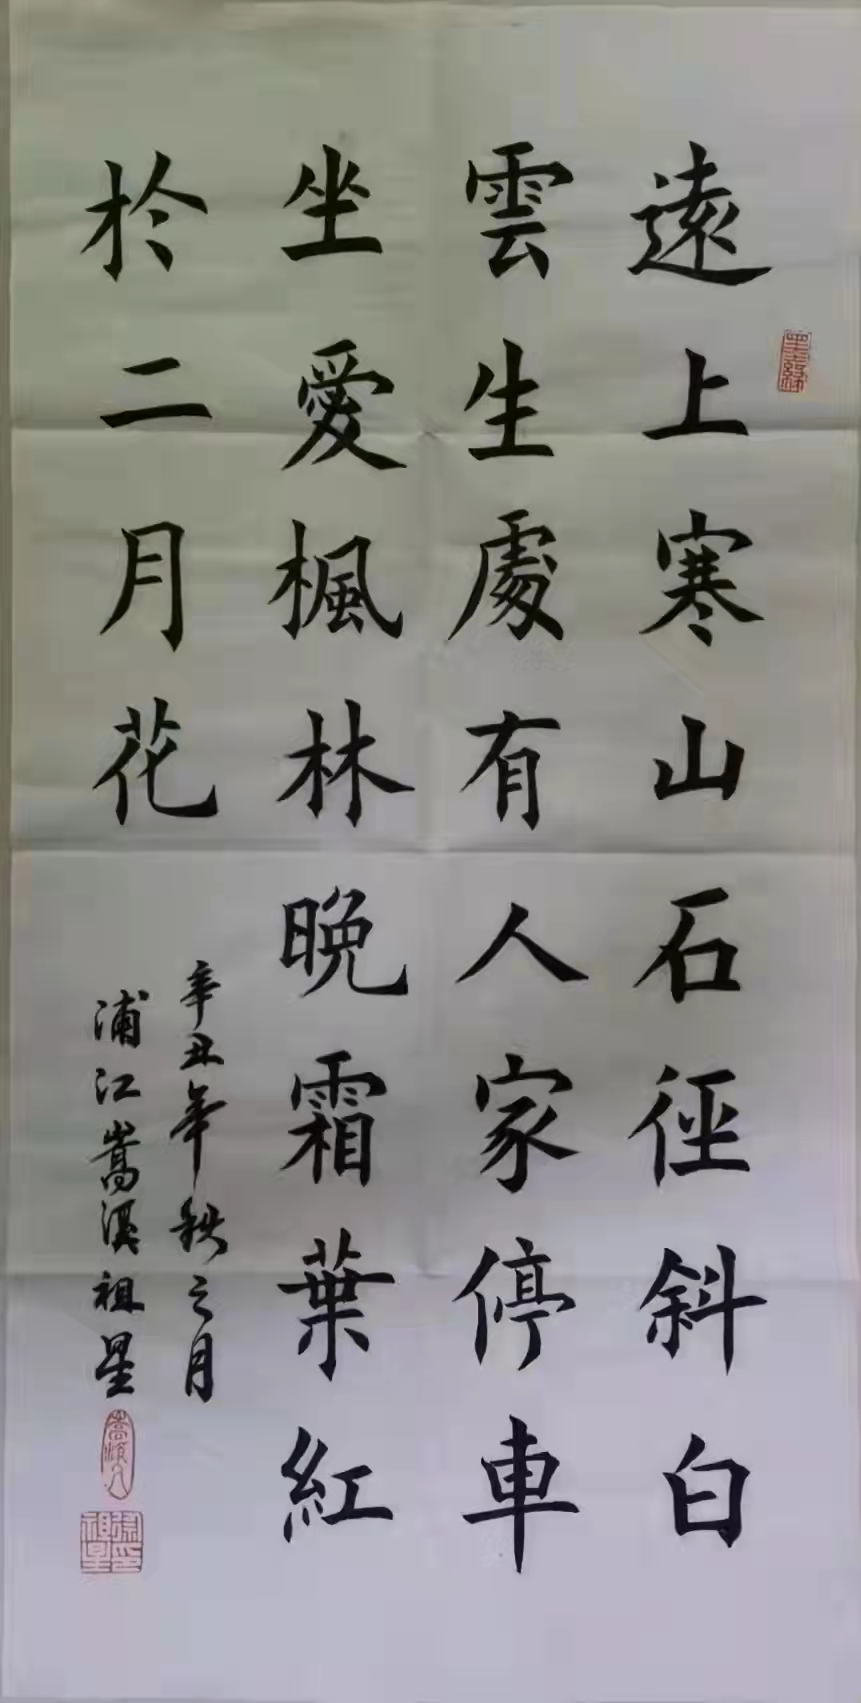 遠上寒山石徑斜白
雲生處有人家停車
坐愛楓林晚霜葉紅
於二月花
辛丑年秋之月
浦江嵩溪祖星